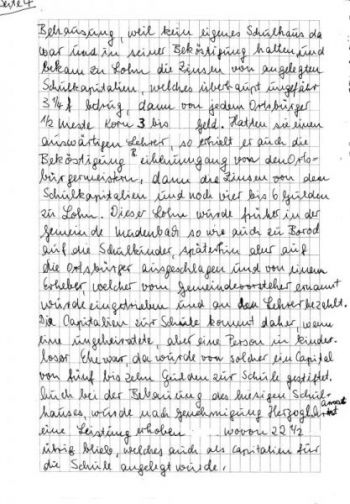 Seite 4
Behausung, weil kein eigenes Schulhaus da
war und in seiner Beköstigung hatten, und
bekam zu Lohn die Zinsen von angelegten
Schulkapitalien, welches überhaupt ungefähr
3 ¼ f betrug, dann von jedem Ortsbürger
½ Meste Korn 3 bis Geld. Hatten sie einen
auswärtigen Lehrer, so erhielt er auch die
Beköstigung von den Orts-
bürgermeistern, dann die Zinsen von dem
Schulkapitalien und noch vier bis 6 Gulden
zu Lohn. Dieser Lohn wurde früher in der
Gemeinde Mudenbach so wie auch zu Borod
auf die Schulkinder, späterhin aber auf
die Ortsbürger ausgeschlagen und von einem
Erheber welcher vom Gemeindevorsteher ernannt
wurde eingetrieben und an den Lehrer bezahlt.
Die Capitalien zur Schule kommt daher, wenn
eine ungeheiratete, aber eine Person in kinder-
loser Ehe war, da wurde von solcher ein Capital
von fünf bis zehn Gulden zur Schule gestiftet.
Auch bei der Erbauung des hiesigen Schul-
hauses, wurde nach Genehmigung Herzogl.
eine Leistung erhoben .... wovon 22 ½
übrig blieb, welches auch als Capitalien für
die Schule angelegt wurde.